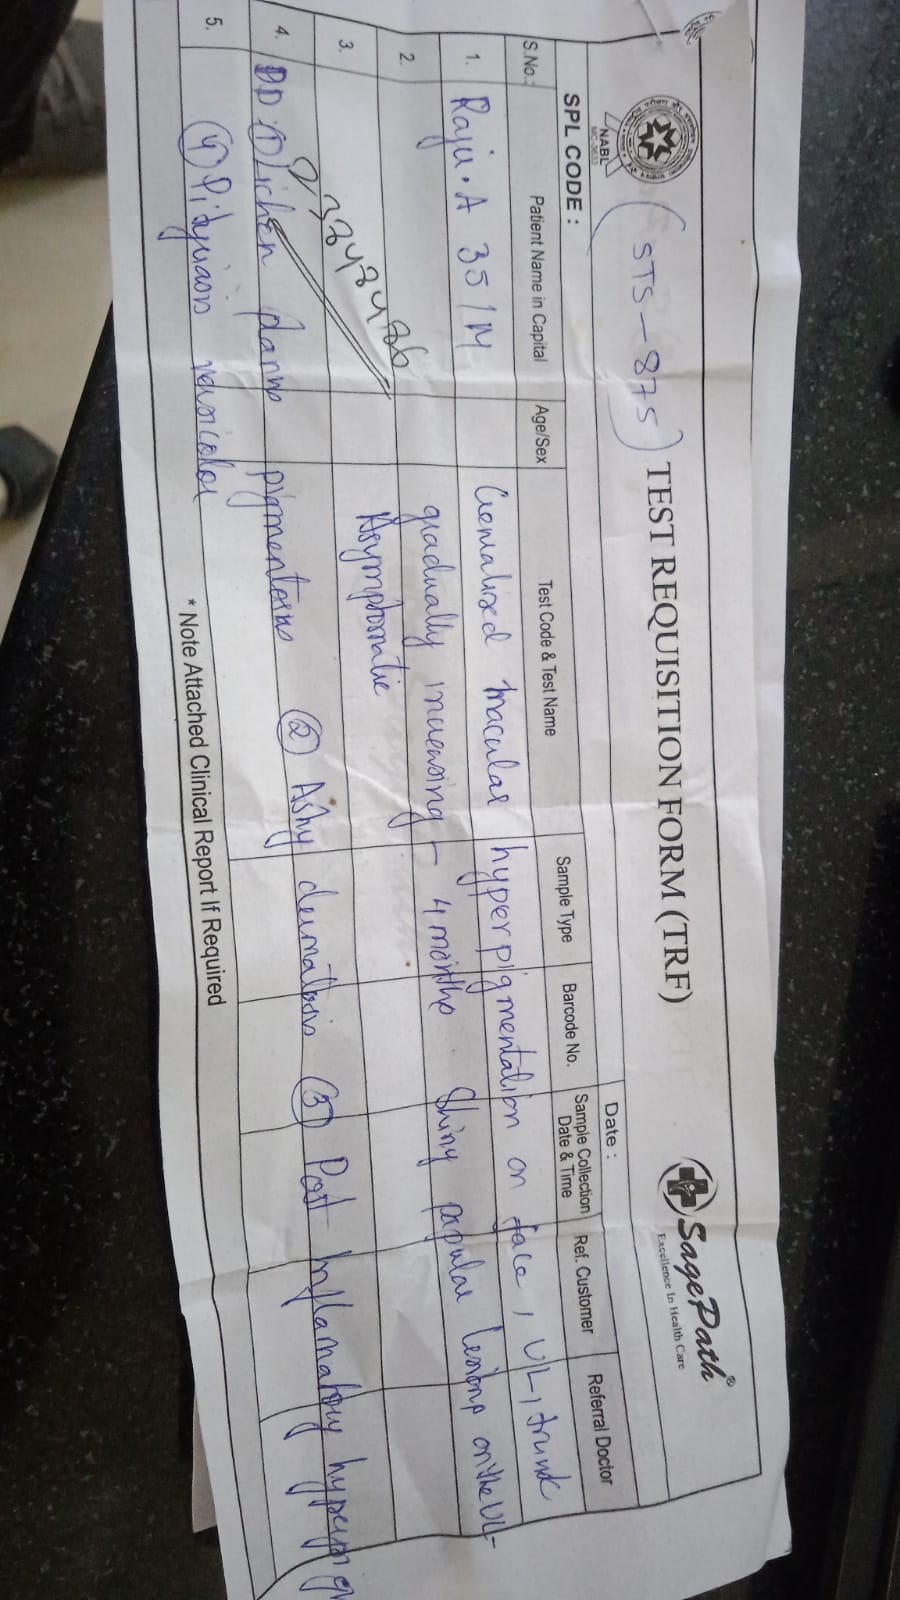 (STS-875) TEST REQUISITION FORM (TRF)
NABL
SagePath®
Excellence In Health Care
SPL CODE :
Date :
S.No.: Patient Name in Capital Age/Sex Test Code & Test Name Sample Type Barcode No. Sample Collection Date & Time Ref. Customer Referral Doctor
1. Raju.A 35/M Genralised macular hyperpigmentation on face, U/L, trunk
gradually increasing - 4 months Shiny papular lesions on the U/L-
2.
Asymptomatic
3.
4. DD ① Lichen planus pigmentosus ② Ashy dermatosis ③ Post Inflamatory hyperpig
5. ④ Pityriasis versicolor
* Note Attached Clinical Report If Required